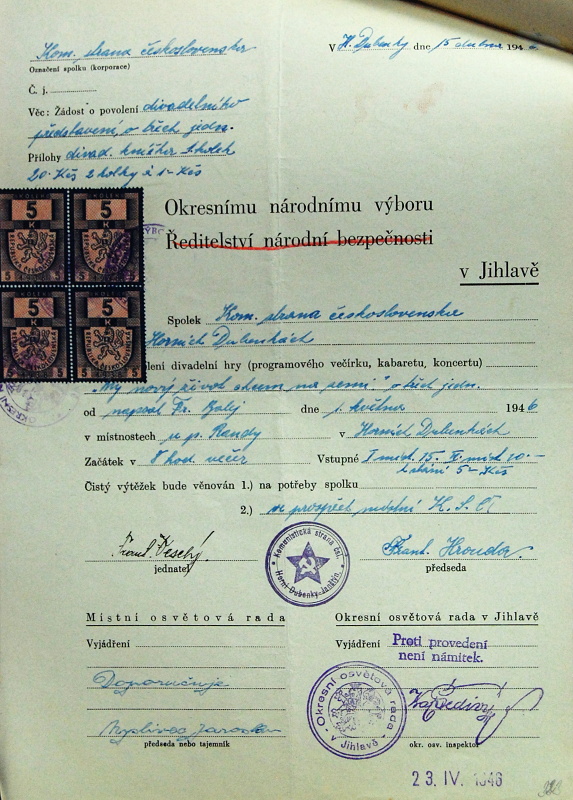 Kom. strana československa
V H. Dubenky dne 15 dubna 194
Označení spolku (korporace)
Č. j.
Věc: Žádost o povolení divadelního
představení, o třech jedn.
Přílohy divad.
20 Kčs 2 kolky á 1- Kčs
Okresnímu národnímu výboru
Ředitelství národní bezpečnosti
v Jihlavě
5 5
K K
REPUBLIKA ČESKOSLOVENSKÁ
5 5 5 5
5 5
K K
REPUBLIKA ČESKOSLOVENSKÁ
5 5 5 5
Spolek Kom. strana československa
Horních Dubenkách
lení divadelní hry (programového večírku, kabaretu, koncertu)
"My nový život chcem na zemi" o třech jedn.
od napsal Fr. dne 1. května 1946
v místnostech u p. Randy v Horních Dubenkách
Začátek v 8 hod. večer Vstupné I míst. 15. II. míst 10.-
k stání 5- Kčs
Čistý výtěžek bude věnován 1.) na potřeby spolku
2.) ve prospěch místní K.S.Č.
Frant. Veselý. Frant. Hrouda.
jednatel předseda
Komunistická strana čsl.
Horní Dubenky-Janštýn
Místní osvětová rada
Vyjádření
Doporučuje
Myslivec Jaroslav
předseda nebo tajemník
Okresní osvětová rada v Jihlavě
Vyjádření Proti provedení
není námitek.
Okresní osvětová rada
v Jihlavě
okr. osv. inspektor
23. IV. 1946